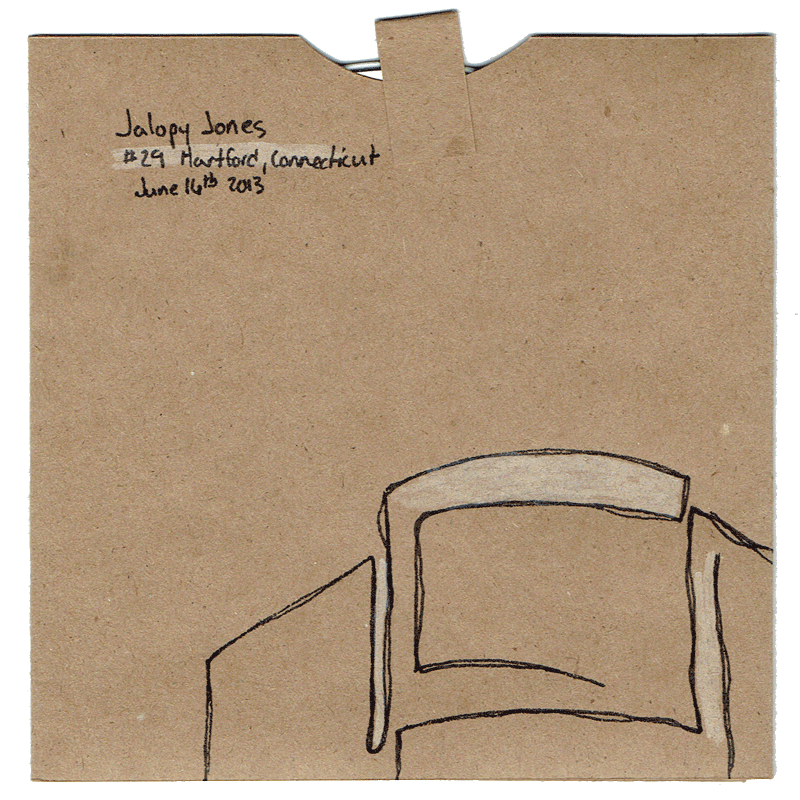 Jalopy Jones
#29 Hartford, Connecticut
June 16th 2013